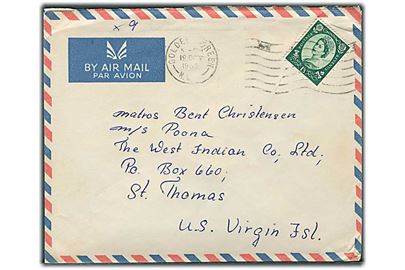 x 9
BY AIR MAIL
PAR AVION
GOLDERS GREEN
matros Bent Christensen
m/s Poona
The West Indian Co, Ltd,
P.O. Box 660,
St. Thomas
U.S. Virgin Isl.